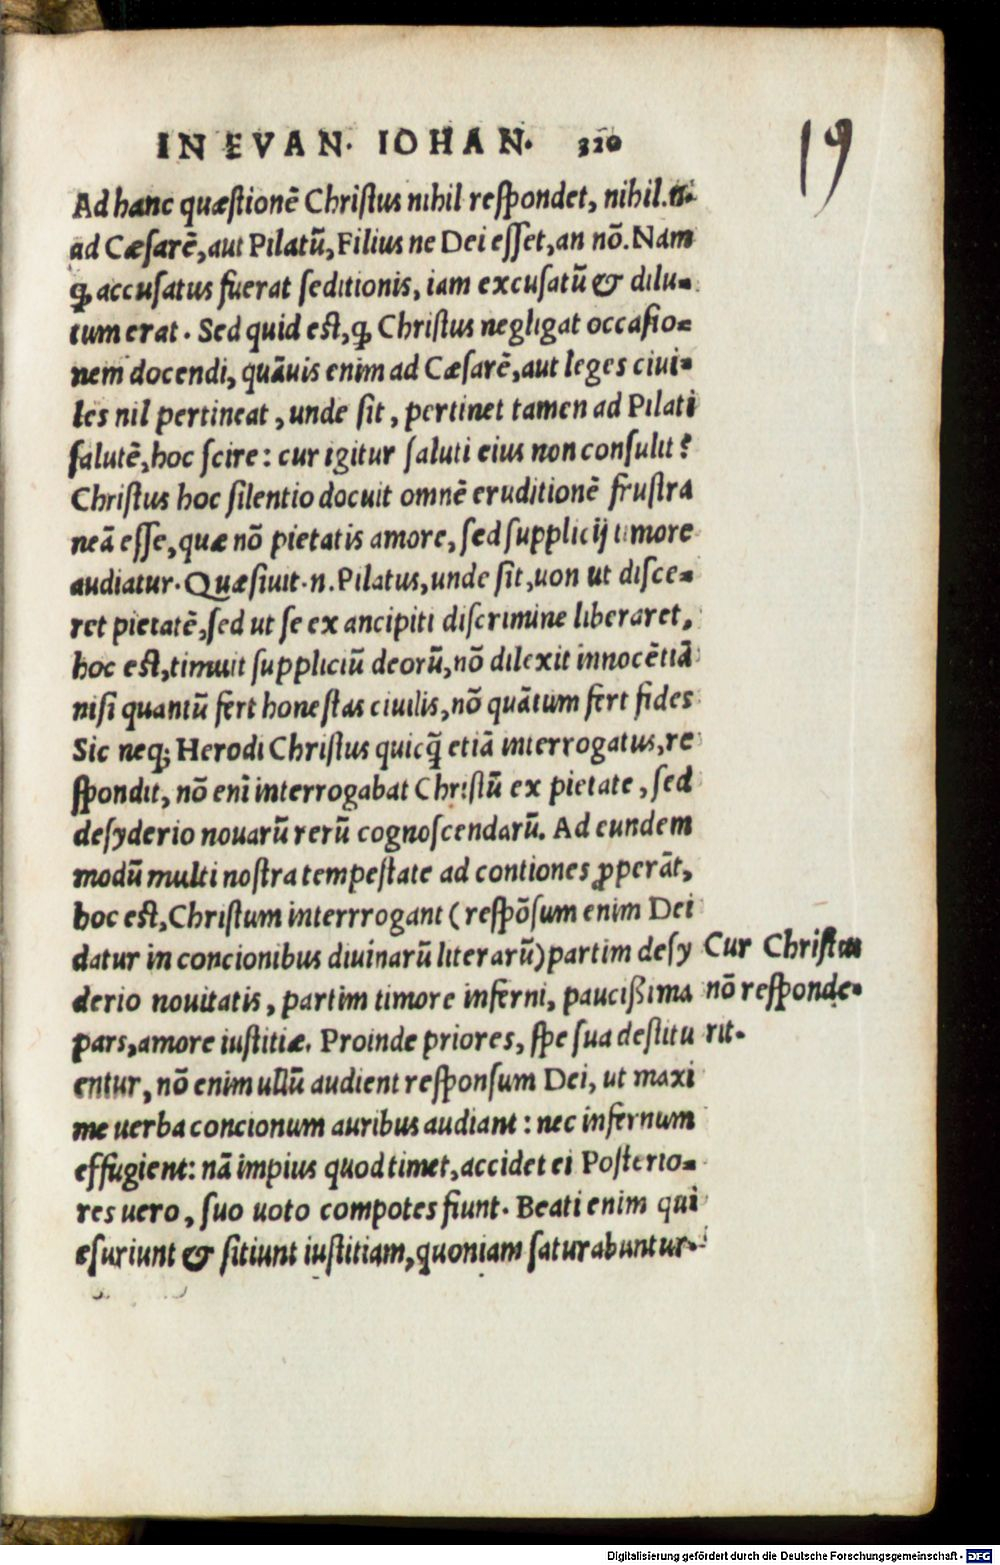 IN EVAN. IOHAN. 320
19
Ad hanc quæstionē Christus nihil respondet, nihil.n.
ad Cæsarē, aut Pilatū, Filius ne Dei esset, an nō. Nam
ꝙ accusatus fuerat seditionis, iam excusatū & dilu-
tum erat. Sed quid est, ꝙ Christus negligat occasio-
nem docendi, quāuis enim ad Cæsarē, aut leges ciui-
les nil pertineat, unde sit, pertinet tamen ad Pilati
salutē, hoc scire: cur igitur saluti eius non consulit?
Christus hoc silentio docuit omnē eruditionē frustra
neā esse, quæ nō pietatis amore, sed supplicij timore
audiatur. Quæsiuit.n. Pilatus, unde sit, uon ut disce-
ret pietatē, sed ut se ex ancipiti discrimine liberaret,
hoc est, timuit suppliciū deorū, nō dilexit innocētiā
nisi quantū fert honestas ciuilis, nō quātum fert fides
Sic neq; Herodi Christus quicq̄ etiā interrogatus, re
spondit, nō eni interrogabat Christū ex pietate, sed
desyderio nouarū rerū cognoscendarū. Ad eundem
modū multi nostra tempestate ad contiones ꝓperāt,
hoc est, Christum interrrogant (respōsum enim Dei
datur in concionibus diuinarū literarū) partim desy
derio nouitatis, partim timore inferni, paucißima
pars, amore iustitiæ. Proinde priores, spe sua destitu
entur, nō enim ullū audient responsum Dei, ut maxi
me uerba concionum auribus audiant: nec infernum
effugient: nā impius quod timet, accidet ei Posterio-
res uero, suo uoto compotes fiunt. Beati enim qui
esuriunt & sitiunt iustitiam, quoniam saturabuntur.
Cur Christus
nō responde-
rit.
Digitalisierung gefördert durch die Deutsche Forschungsgemeinschaft - DFG